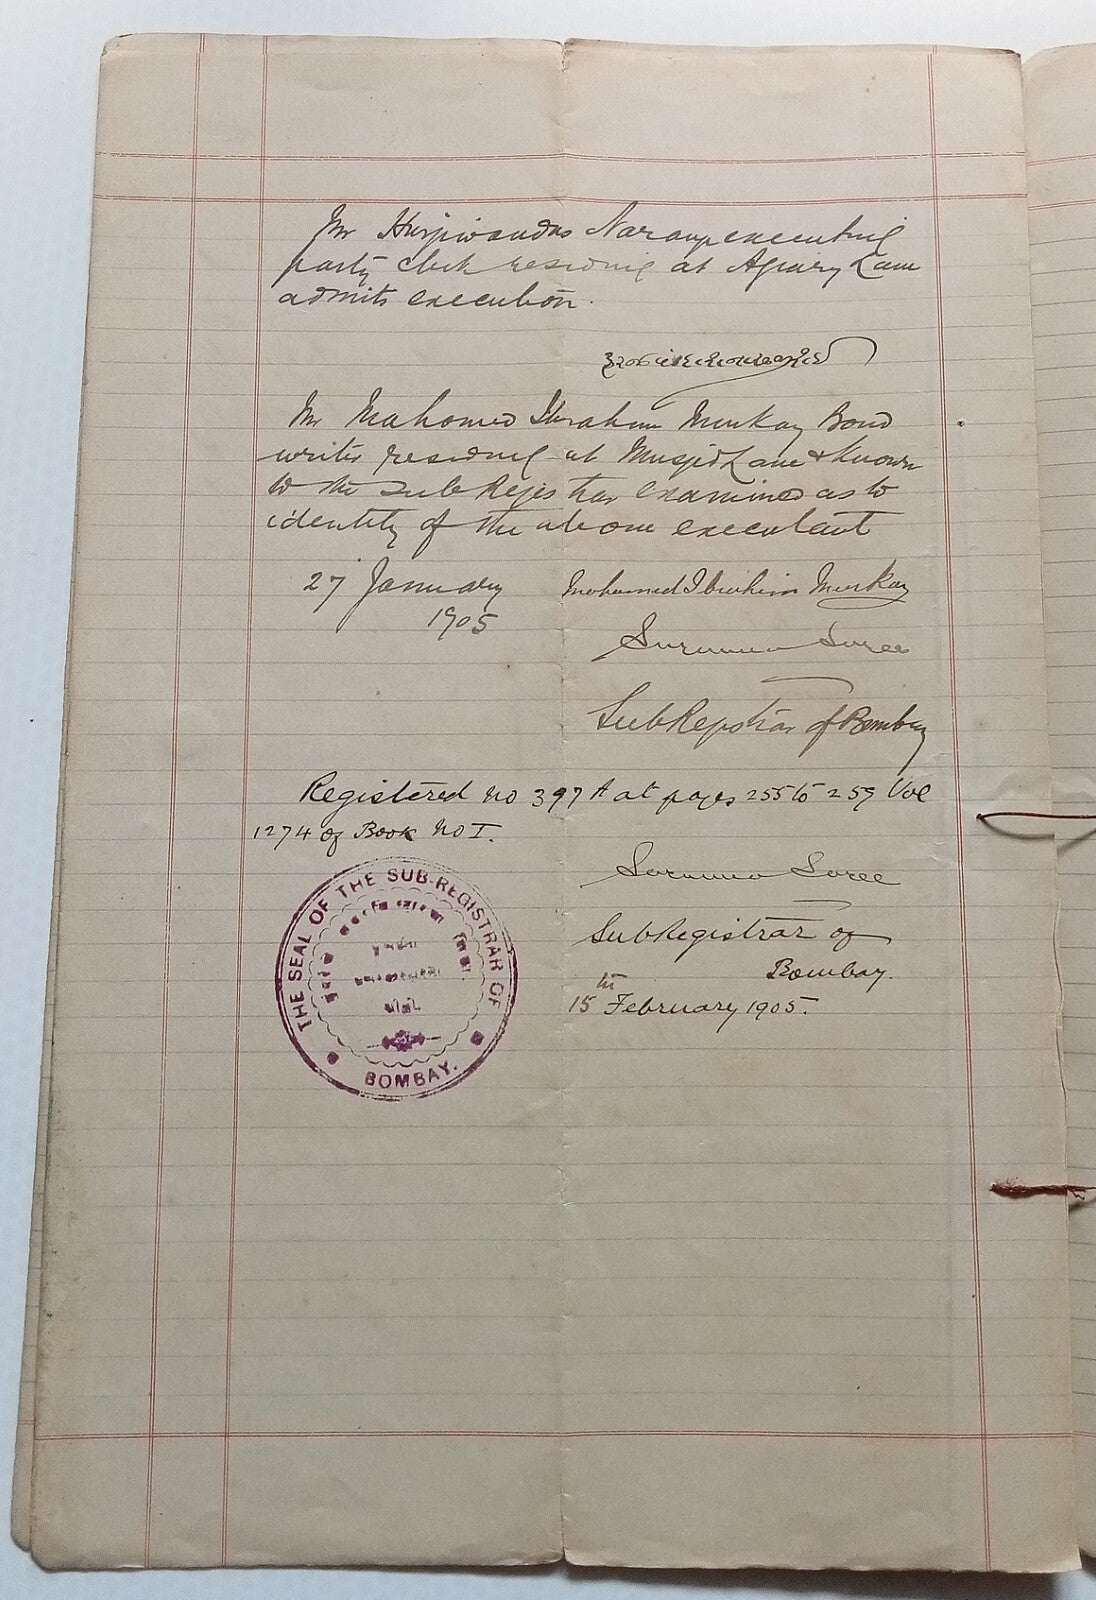 Mr Hurjiwandas Naranji executing
party clerk residing at Agiary Lane
admits execution.
Mr Mahomed Ibrahim Murkay Bond
writer residing at Musjid Lane & known
to the Sub Registrar examined as to
identity of the above executant
27 January
1905
Mohamed Ibrahim Murkay
SubRegistrar of Bombay
Registered No 397 A at pages 255 to 259 Vol
1274 of Book No I.
SubRegistrar of
Bombay.
15th February 1905.
THE SEAL OF THE SUB-REGISTRAR OF
BOMBAY.